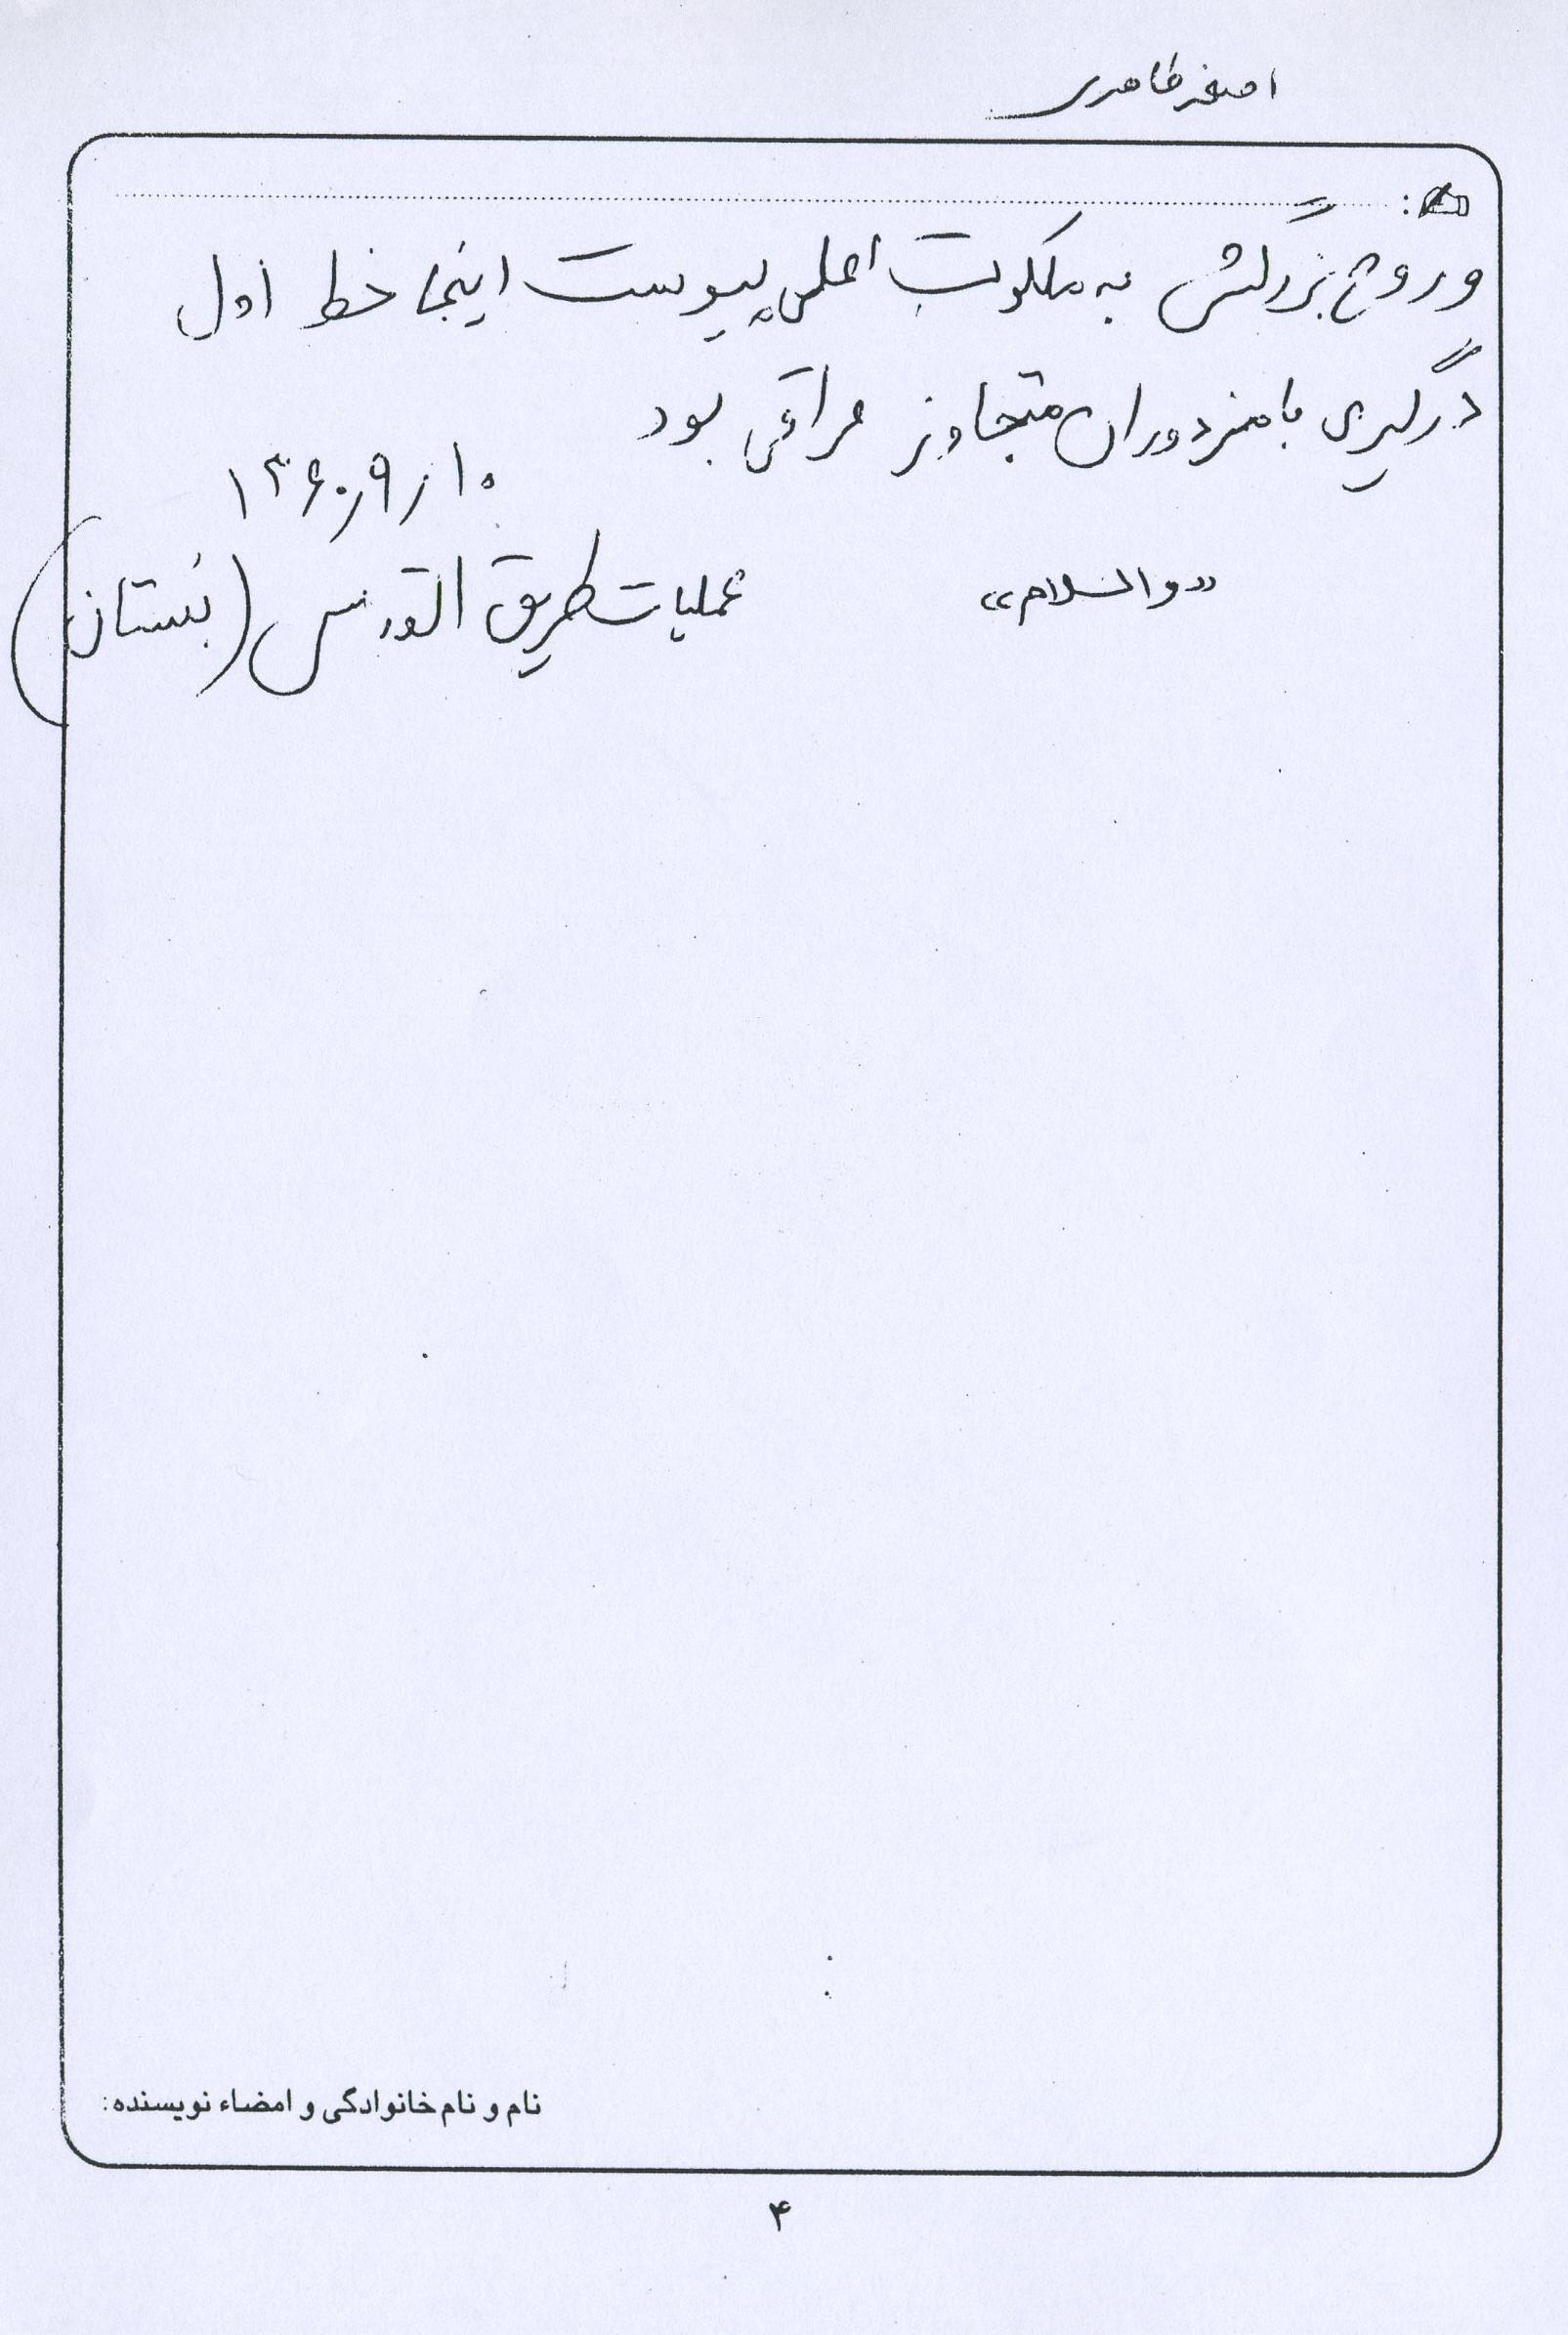 اصغر طاهری
و روح بزرگش به ملکوت اعلی پیوست اینجا خط اول
درگیری با مزدوران متجاوز عراقی بود
۱۳۶۰/۹/۱۰
«والسلام» عملیات طریق القدس (بستان)
نام و نام خانوادگی و امضاء نویسنده:
۴